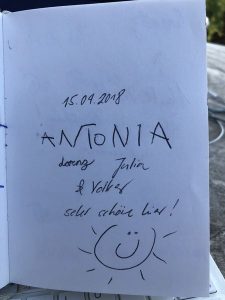 15.09.2018
ANTONIA
Lorenz Julian
& Volker
sehr schön hier!